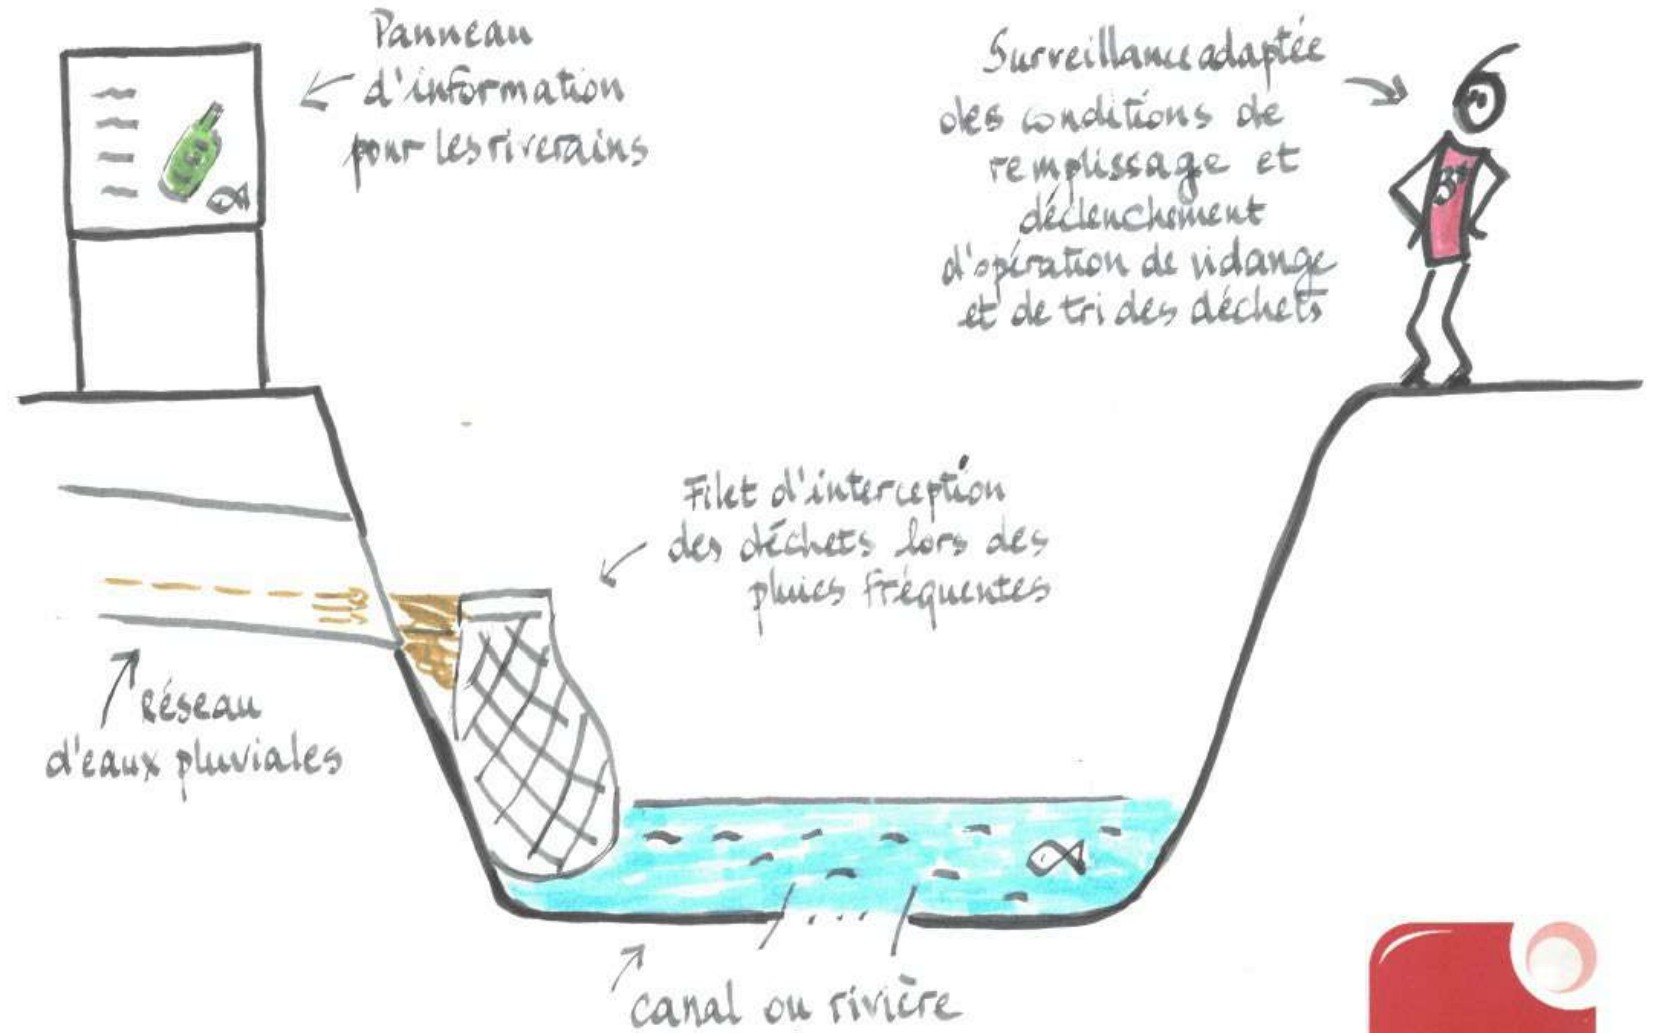 Panneau
d'information
pour les riverains
Surveillance adaptée
des conditions de
remplissage et
déclenchement
d'opération de vidange
et de tri des déchets
Filet d'interception
des déchets lors des
pluies fréquentes
Réseau
d'eaux pluviales
canal ou rivière